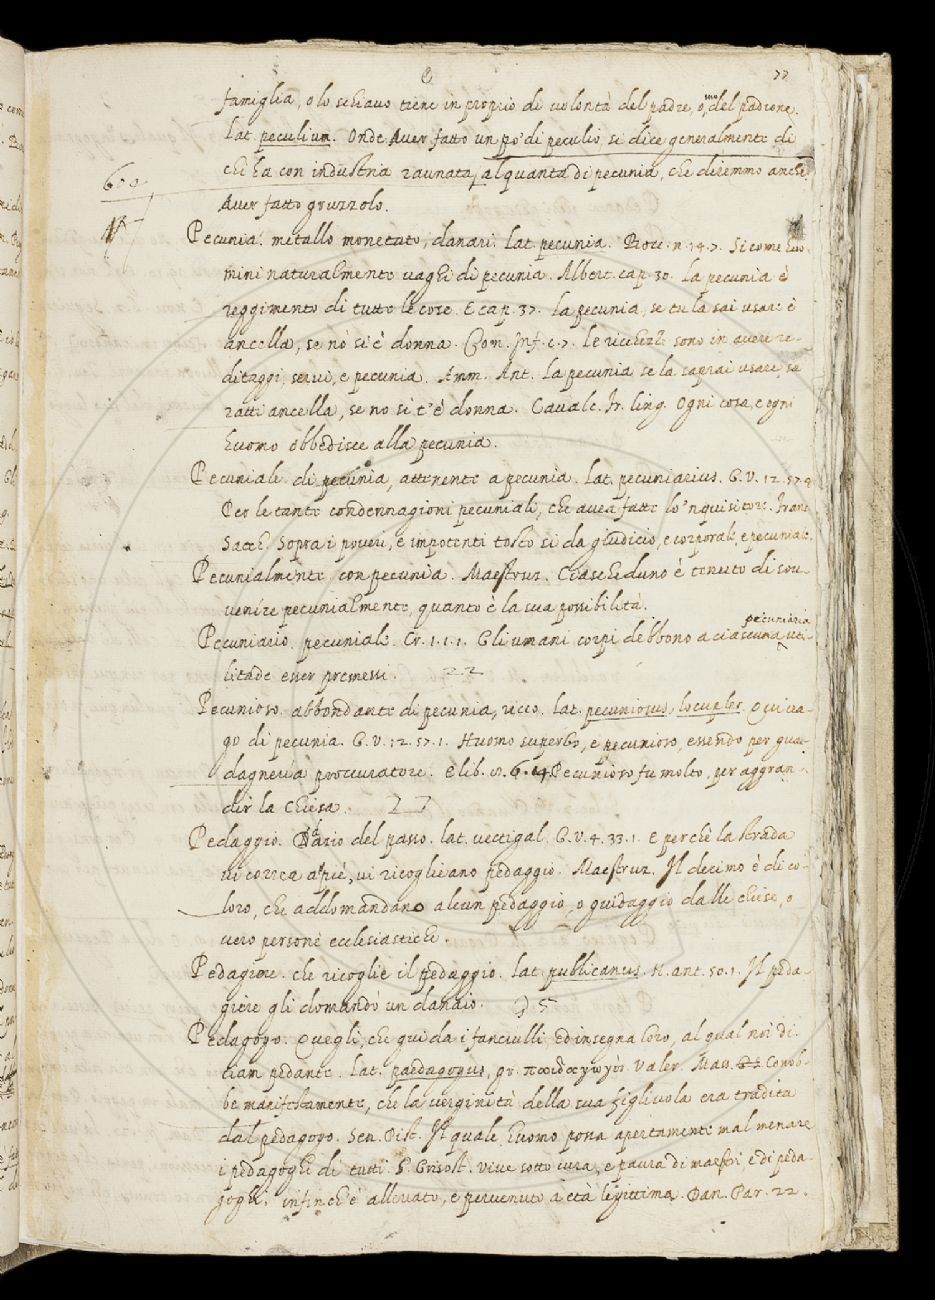 77
famiglia, o lo schiavo tiene in proprio di volontà del padre, o del padrone.
Lat. peculium. Onde Aver fatto un po' di peculio, si dice generalmente di
chi ha con industria raunata alquanta di pecunia, che diremmo anche
600
Aver fatto gruzzolo.
Pecunia. metallo monetato, danari. Lat. pecunia. Bocc. n. 14. 7. Sicome huo-
mini naturalmente vaghi di pecunia. Albert. cap. 30. La pecunia è
reggimento di tutte le cose. E cap. 37. La pecunia, se tu la sai usare è
ancella, se nò si è donna. Com. Inf. c. 7. Le ricchezze sono in avere re-
ditaggi, servi, e pecunia. Amm. Ant. La pecunia se la saprai usare, sa
ratti ancella, se no si t'è donna. Cavalc. fr. ling. Ogni cosa, e ogni
huomo obbedisce alla pecunia.
Pecuniale. di pecunia, attenente a pecunia. Lat. pecuniarius. G. V. 12. 57. 9
Per le tante condennagioni pecuniali, che avea fatte lo 'nquisitore. Franc.
Sacch. Sopra i poveri, e impotenti tosto si da giudicio, e corporale, e pecuniale.
Pecunialmente. con pecunia. Maestruz. Ciascheduno è tenuto di sov-
venire pecunialmente, quanto è la sua possibilità.
Pecuniario. pecuniale. Cr. 1. 1. 1. Gli umani corpi debbono a ciascuna pecuniaria uti-
litade esser premessi. 22
Pecunioso. abbondante di pecunia, ricco. Lat. pecuniosus, locuples. Qui va-
go di pecunia. G. V. 12. 57. 1. Huomo superbo, e pecunioso, essendo per gua-
dagneria proccuratore. E lib. 6. 14. Pecunioso fu molto, per aggran-
dir la Chiesa. 27
Pedaggio. Dazio del passo. Lat. vectigal. G. V. 4. 33. 1. E perchè la strada
vi correa a piè, vi ricoglieano pedaggio. Maestruz. Il decimo è di co-
loro, che addomandano alcun pedaggio, o guidaggio dalle chiese, o
vero persone ecclesiastiche.
Pedagiere. che ricoglie il pedaggio. Lat. publicanus. N. ant. 50. 1. Il peda-
giere gli domandò un danaio. 25
Pedagogo. Quegli, che guida i fanciulli, ed insegna loro, al qual noi di-
ciam pedante. Lat. paedagogus, gr. παιδαγωγός. Valer. Mass. Conob-
be manifestamente, che la verginità della sua figliuola era tradita
dal pedagogo. Sen. Pist. Il quale huomo possa apertamente mal menare
i pedagoghi di tutti. S. Grisost. Vive sotto cura, e paura di maestri, e di peda-
goghi, infinch'è allevato, e pervenuto a età legittima. Dan. Par. 22.